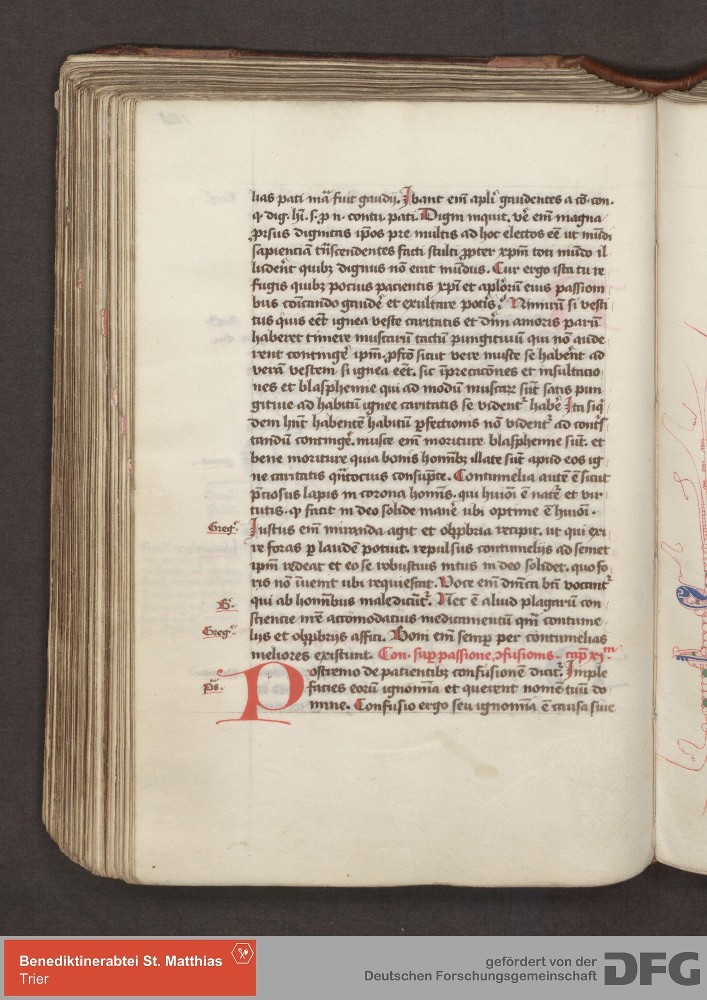 lias pati mͣ fuit gaudij. Ibant em̄ apl̓i gaudentes a cō. con.
q. dig. hī. s. p n. contu. pati. Digni inquit. ve᷑ em̄ magna
ꝓrsus dignitas ip̄os pre multis ad hoc electos eē ut mūdi
sapienciā trāscendentes facti stulti ꝓpter xp̄m toti mūdo il
luderēt quibꝫ dignus nō erat mūdus. Cur ergo ista tu re
fugis quibꝫ pocius pacientis xp̄i et aplōrū eius passioni
bus cōicando gaudē et exultare potis? Nimirū si vesti
tus quis eēt ignea veste caritatis et diīni amoris parū
haberet timere muscarū tactū pungitiuū qui nō aude
rent contingē ip̄m. ꝓfcō sicut vere musce se habēnt ad
verā vestem si ignea eēt. sic īprecacōnes et insultacio
nes et blasphemie qui ad modū muscarꝝ sūt satis pun
gitiue ad habitū ignee caritatis se vident᷑ habē Ita siqͥ
dem hn̄t habentē habitū ꝑfectionis nō vident᷑ ad
tandū contingē. musce em̄ moriture blasphemie sūt. et
bene moriture quia bonis homībꝫ illate sūt apud eos ig
ne caritatis qn̄tocius consūpte. Contumelia autē ē sicut
p̄ciosus lapis in corona homīs. qui huiōi ē nate᷑ et vir
tutis. ꝙ facit in deo solide manē ubi optime ē huiōi.
Greg᷑.
Iustus em̄ miranda agit et obꝓbria recipit. ut qui exi
re foras ꝑ laudē potuit. repulsus contumelijs ad semet
ip̄m redeat et eo se robustius intus in deo solidet. quo fo
ris nō īuenit ubi requiescat. Voce em̄ dn̄ica bt̄i vocant᷑
B᷑.
qui ab homībus maledicūt᷑. Nec ē aliud plagarū con
sciencie mēe accōmodatius medicamentū qm̄ contume
Greg᷑.
lijs et obꝓbrijs affici. Boni em̄ semꝑ per contumelias
meliores existunt. Con. suꝑ passione ɔfusionis. cap̄ xjͫ
Pˢ.
Postremo de pacientibꝫ confusionē dicit᷑. Imple
facies eorū ignomīa et querent nomē tuū do
mine. Confusio ergo seu ignomīa ē causa siue
Benediktinerabtei St. Matthias
Trier
gefördert von der
Deutschen Forschungsgemeinschaft
DFG